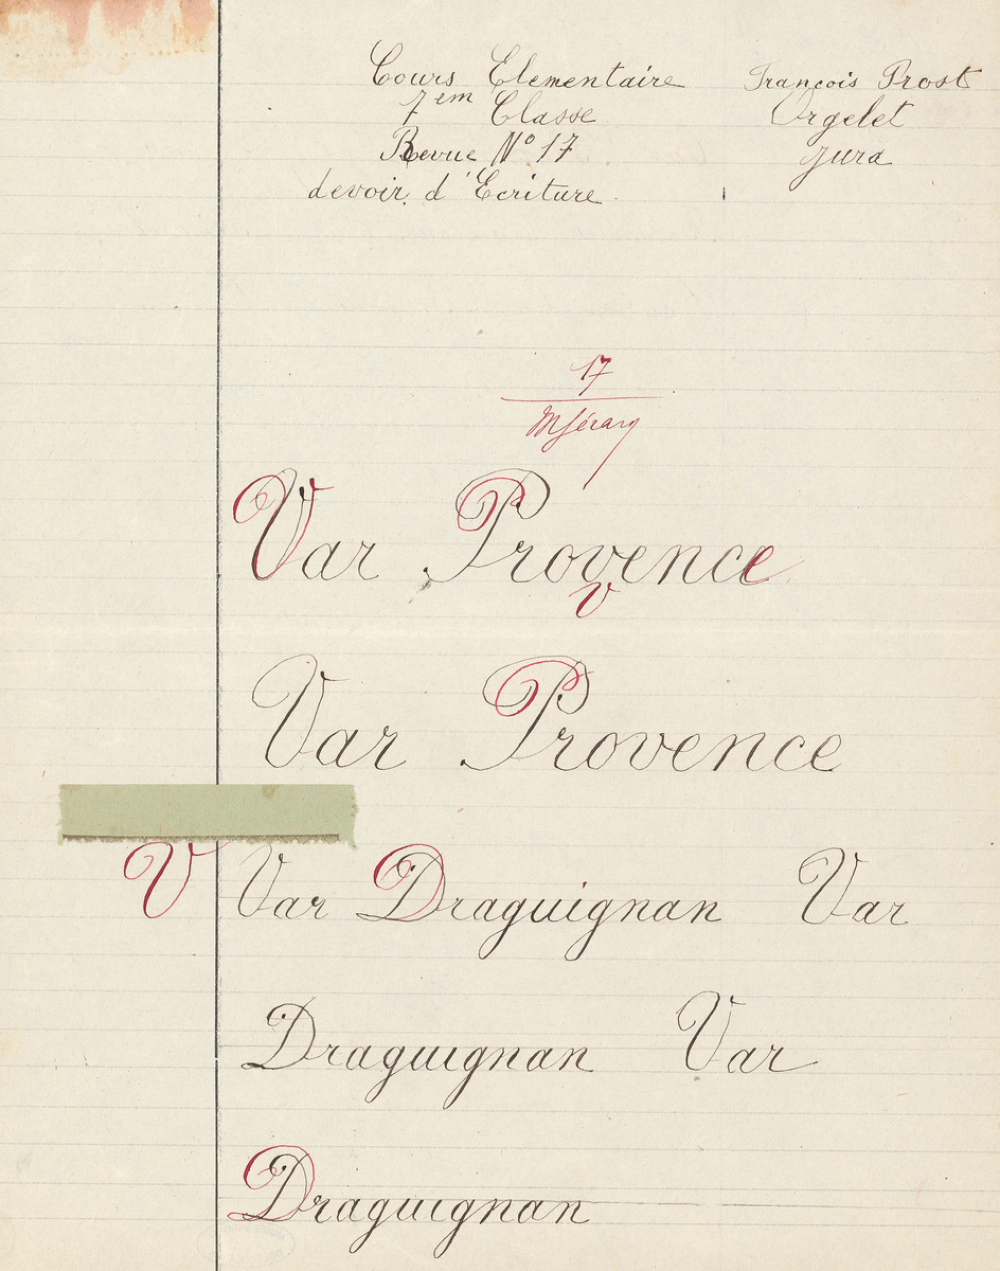 Cours Elementaire François Prost
7em Classe Orgelet
Revue N° 17 Jura
devoir d'Ecriture
17
Var Provence
v
Var Provence
V Var Draguignan Var
Draguignan Var
Draguignan